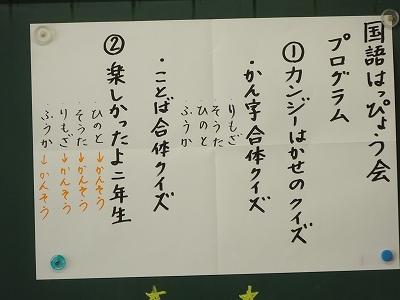 国語はっぴょう会
プログラム
①カンジーはかせのクイズ
・かん字合体クイズ
・りもざ
そうた
ひのと
ふうか
・ことば合体クイズ
②楽しかったよ二年生
・ひのと→かんそう
・そうた→かんそう
・りもざ→かんそう
・ふうか→かんそう